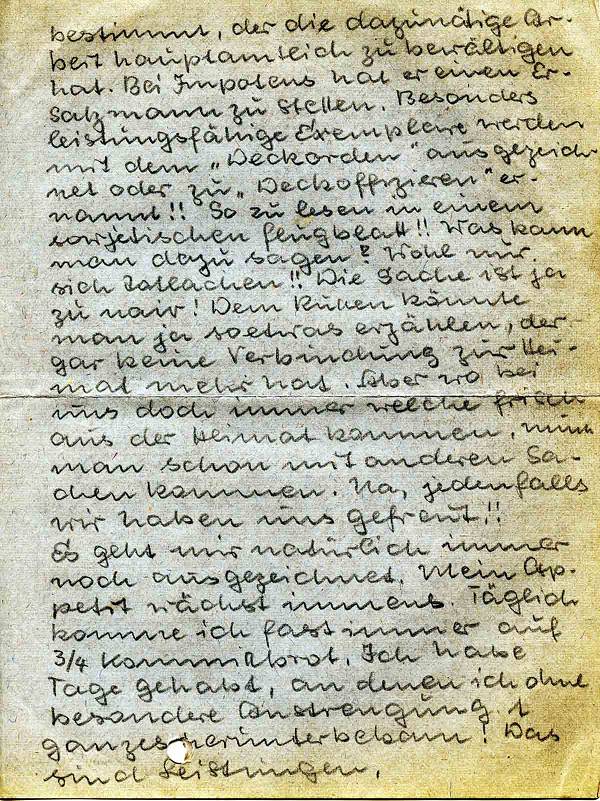 bestimmt, der die dazunötige Ar-
beit hauptamtlich zu bewältigen
hat. Bei Impotens hat er einen Er-
satzmann zu stellen. Besonders
leistungsfähige Exemplare werden
mit dem „Deckorden" ausgezeich-
net oder zu „Deckoffizieren" er-
nannt!! So zu lesen in einem
sowjetischen Flugblatt!! Was kann
man dazu sagen? Wohl nur.
sich totlachen!! Die Sache ist ja
zu naiv! Dem Russen könnte
man ja soetwas erzählen, der
gar keine Verbindung zur Hei-
mat mehr hat. Aber wo bei
uns doch immer welche frisch
aus der Heimat kommen, muß
man schon mit anderen Sa-
chen kommen. Na, jedenfalls
wir haben uns gefreut!!
Es geht mir natürlich immer
noch ausgezeichnet. Mein Ap-
petit wächst immens. Täglich
komme ich fast immer auf
3/4 Kommißbrot. Ich habe
Tage gehabt, an denen ich ohne
besondere Anstrengung 1
ganzes herunterbekam! Das
sind Leistungen,